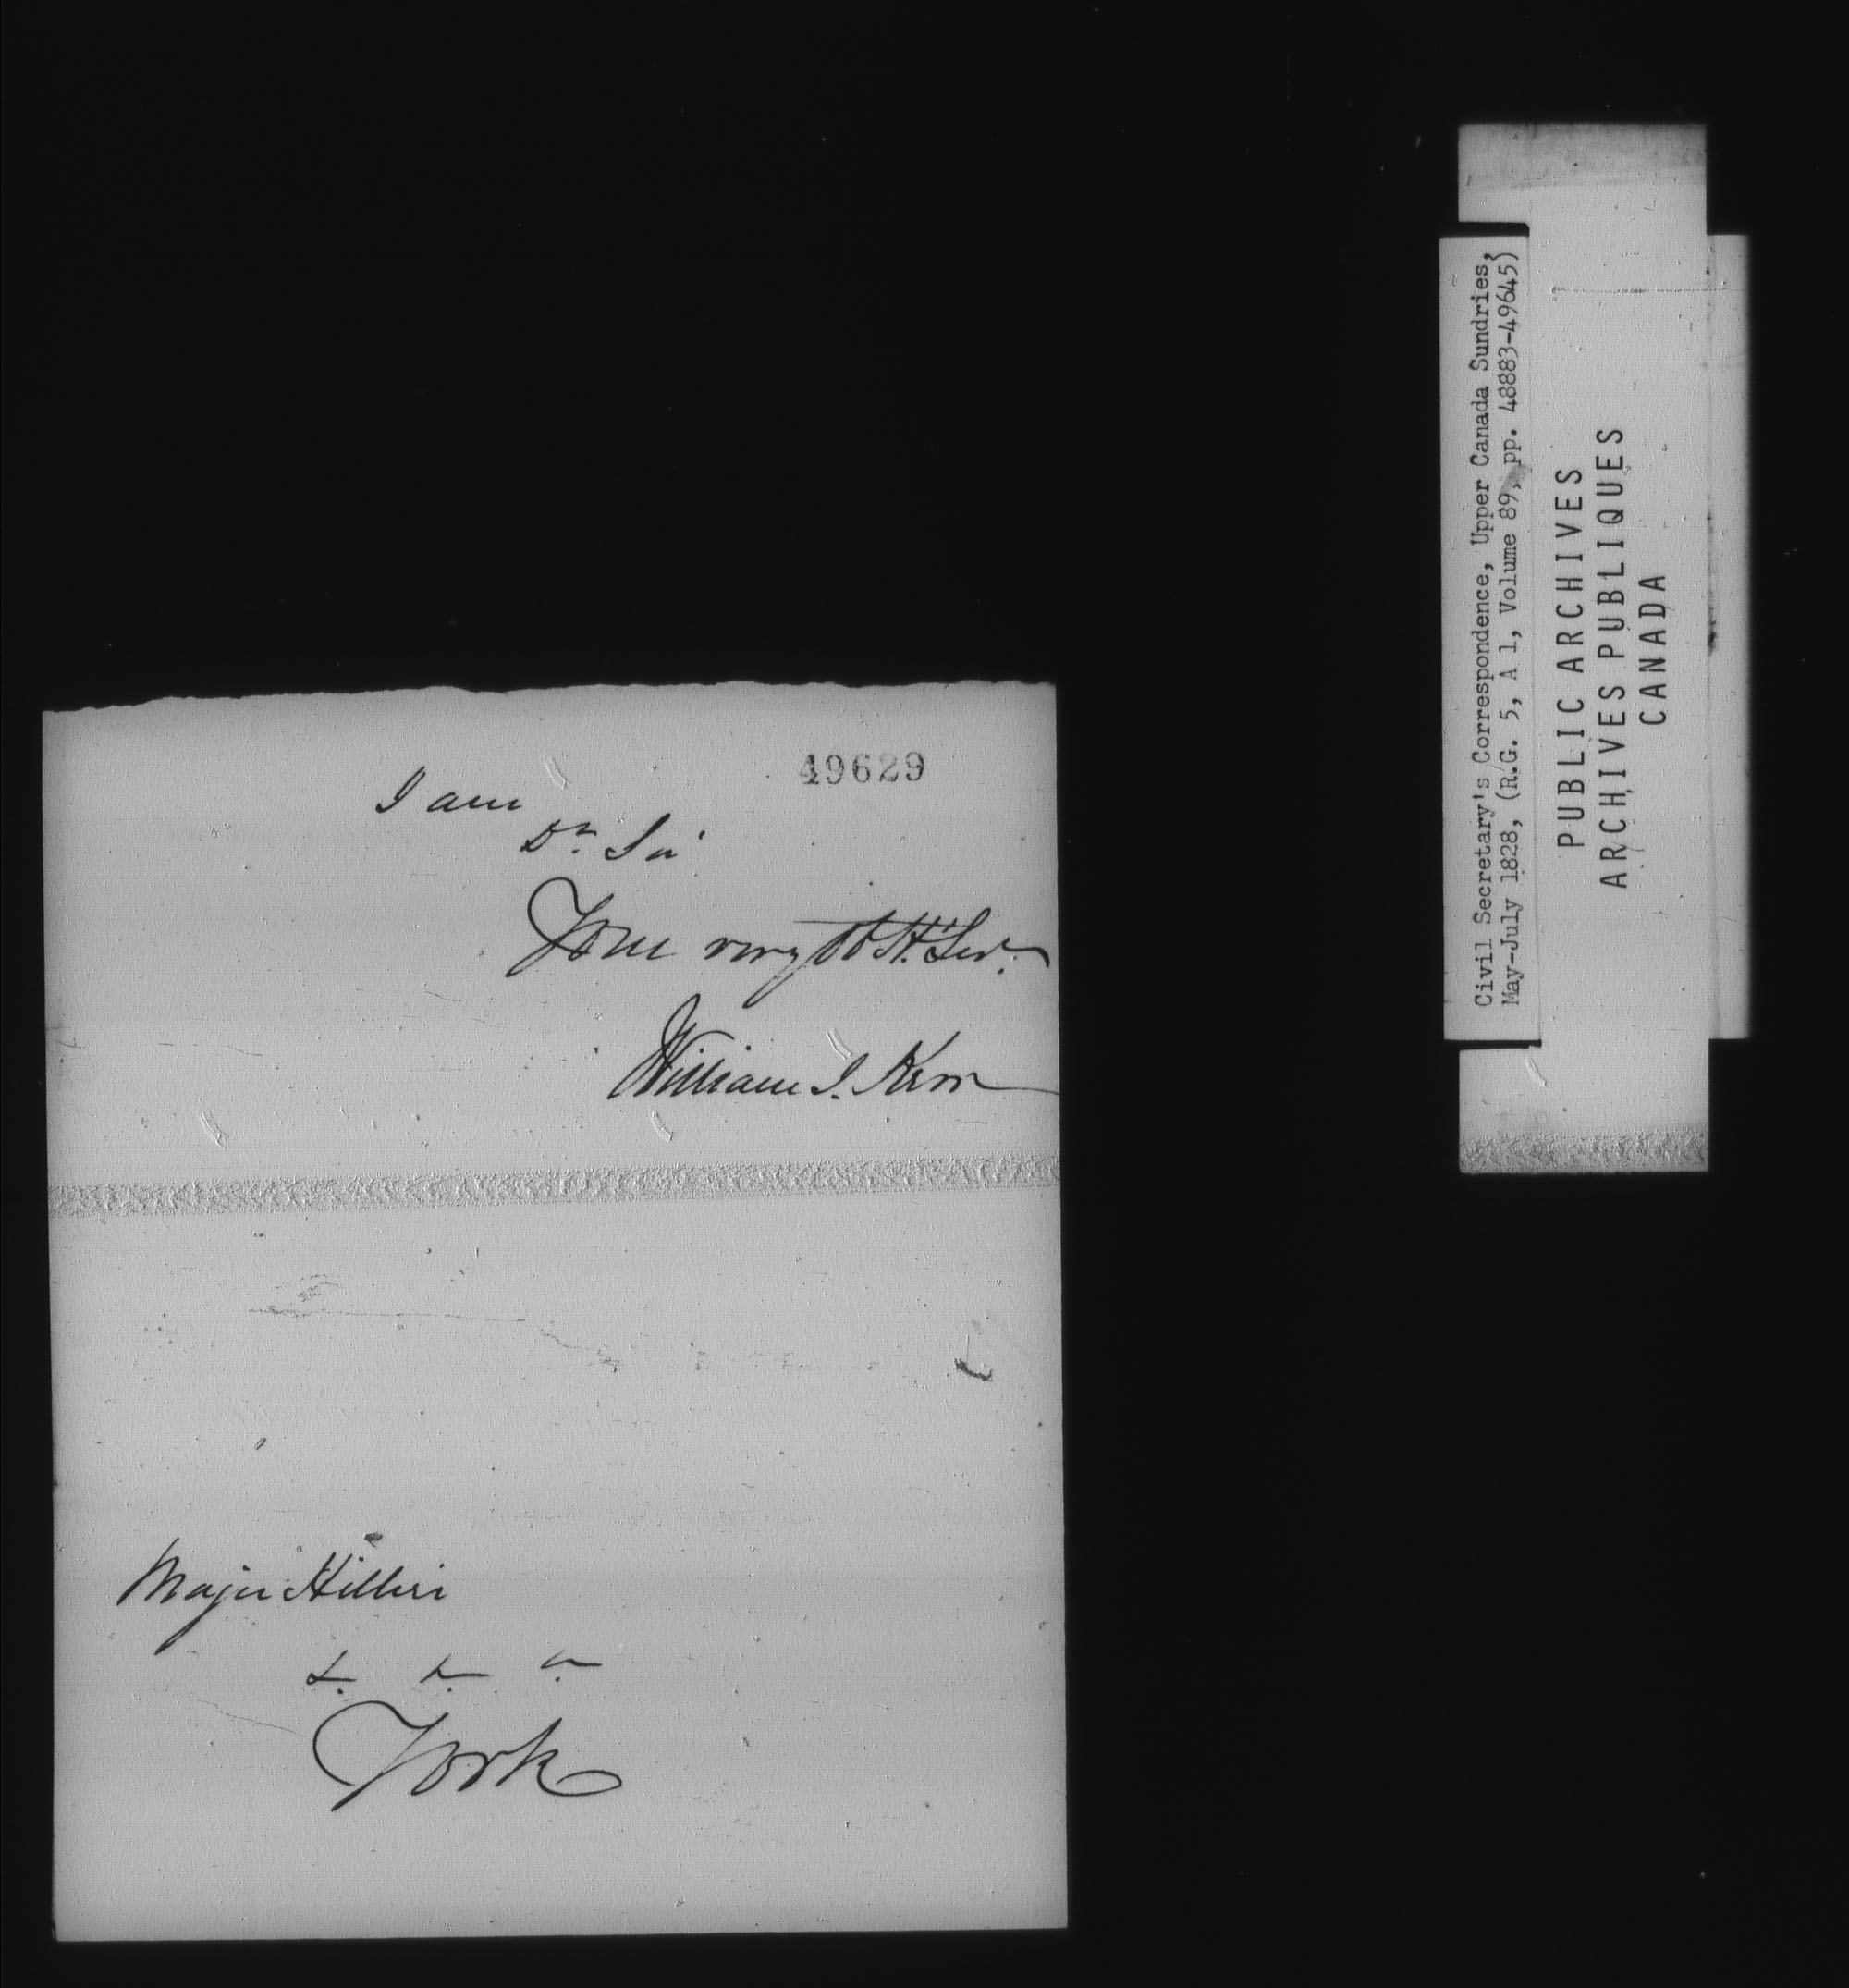 49629
I am
Dr. Sir
Your very Ob. H. Ser.
William J. Kerr
Major Hillier
&. &. &.
York
Civil Secretary's Correspondence, Upper Canada Sundries,
May-July 1828, (R.G. 5, A 1, Volume 89, pp. 48883-49645)
PUBLIC ARCHIVES
ARCHIVES PUBLIQUES
CANADA